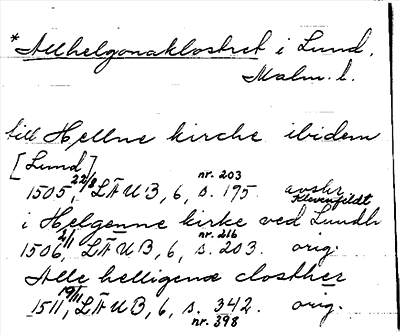 *Allhelgonaklostret i Lund,
Malm. l.
till Hellne kirche ibidem
[Lund]
nr. 203
1505, 22/8 LÄUB, 6, s. 195. avskr. Klevenfeldt
i Helgenne kirke ved Lundh
nr. 216
1506, 2/1 LÄUB, 6, s. 203. orig.
Alle helligenæ closther
1511, 19/11 LÄUB, 6, s. 342. orig.
nr. 398